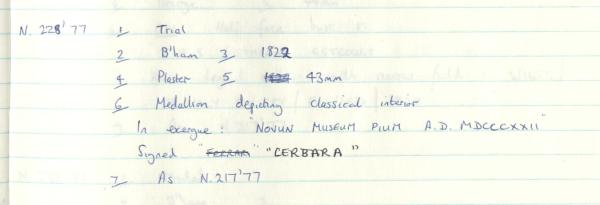 N. 228'77 1 Trial
2 B'ham 3 1822
4 Plaster 5 1822 43mm
6 Medallion depicting classical interior
In exergue: "NOVUN MUSEUM PIUM A.D. MDCCCXXII"
Signed "FERRAR" "CERBARA"
7 As N.217'77